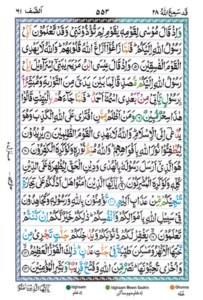 قَدْ سَمِعَ اللّٰهُ ٢٨ ٥٥٣ اَلصَّفّ ٦١
وَاِذْ قَالَ مُوْسٰى لِقَوْمِهٖ يٰقَوْمِ لِمَ تُؤْذُوْنَنِيْ وَقَدْ تَّعْلَمُوْنَ اَنِّيْ
رَسُوْلُ اللّٰهِ اِلَيْكُمْ فَلَمَّا زَاغُوْٓا اَزَاغَ اللّٰهُ قُلُوْبَهُمْ وَاللّٰهُ لَا يَهْدِي
الْقَوْمَ الْفٰسِقِيْنَ ۝ وَاِذْ قَالَ عِيْسَى ابْنُ مَرْيَمَ يٰبَنِيْٓ اِسْرَآءِيْلَ اِنِّيْ
رَسُوْلُ اللّٰهِ اِلَيْكُمْ مُّصَدِّقًا لِّمَا بَيْنَ يَدَيَّ مِنَ التَّوْرٰىةِ وَمُبَشِّرًا
بِرَسُوْلٍ يَّاْتِيْ مِنْۢ بَعْدِي اسْمُهٗٓ اَحْمَدُ فَلَمَّا جَآءَهُمْ بِالْبَيِّنٰتِ قَالُوْا
هٰذَا سِحْرٌ مُّبِيْنٌ ۝ وَمَنْ اَظْلَمُ مِمَّنِ افْتَرٰى عَلَى اللّٰهِ الْكَذِبَ وَهُوَ
يُدْعٰٓى اِلَى الْاِسْلَامِ وَاللّٰهُ لَا يَهْدِي الْقَوْمَ الظّٰلِمِيْنَ ۝ يُرِيْدُوْنَ
لِيُطْفِـُٔوْا نُوْرَ اللّٰهِ بِاَفْوَاهِهِمْ وَاللّٰهُ مُتِمُّ نُوْرِهٖ وَلَوْ كَرِهَ الْكٰفِرُوْنَ ۝
هُوَ الَّذِيْٓ اَرْسَلَ رَسُوْلَهٗ بِالْهُدٰى وَدِيْنِ الْحَقِّ لِيُظْهِرَهٗ عَلَى الدِّيْنِ
كُلِّهٖ وَلَوْ كَرِهَ الْمُشْرِكُوْنَ ۝ يٰٓاَيُّهَا الَّذِيْنَ اٰمَنُوْا هَلْ اَدُلُّكُمْ عَلٰى
تِجَارَةٍ تُنْجِيْكُمْ مِّنْ عَذَابٍ اَلِيْمٍ ۝ تُؤْمِنُوْنَ بِاللّٰهِ وَرَسُوْلِهٖ وَتُجَاهِدُوْنَ
فِيْ سَبِيْلِ اللّٰهِ بِاَمْوَالِكُمْ وَاَنْفُسِكُمْ ذٰلِكُمْ خَيْرٌ لَّكُمْ اِنْ كُنْتُمْ
تَعْلَمُوْنَ ۝ يَغْفِرْ لَكُمْ ذُنُوْبَكُمْ وَيُدْخِلْكُمْ جَنّٰتٍ تَجْرِيْ مِنْ
تَحْتِهَا الْاَنْهٰرُ وَمَسٰكِنَ طَيِّبَةً فِيْ جَنّٰتِ عَدْنٍ ذٰلِكَ الْفَوْزُ الْعَظِيْمُ ۝
وَاُخْرٰى تُحِبُّوْنَهَا نَصْرٌ مِّنَ اللّٰهِ وَفَتْحٌ قَرِيْبٌ وَبَشِّرِ الْمُؤْمِنِيْنَ ۝